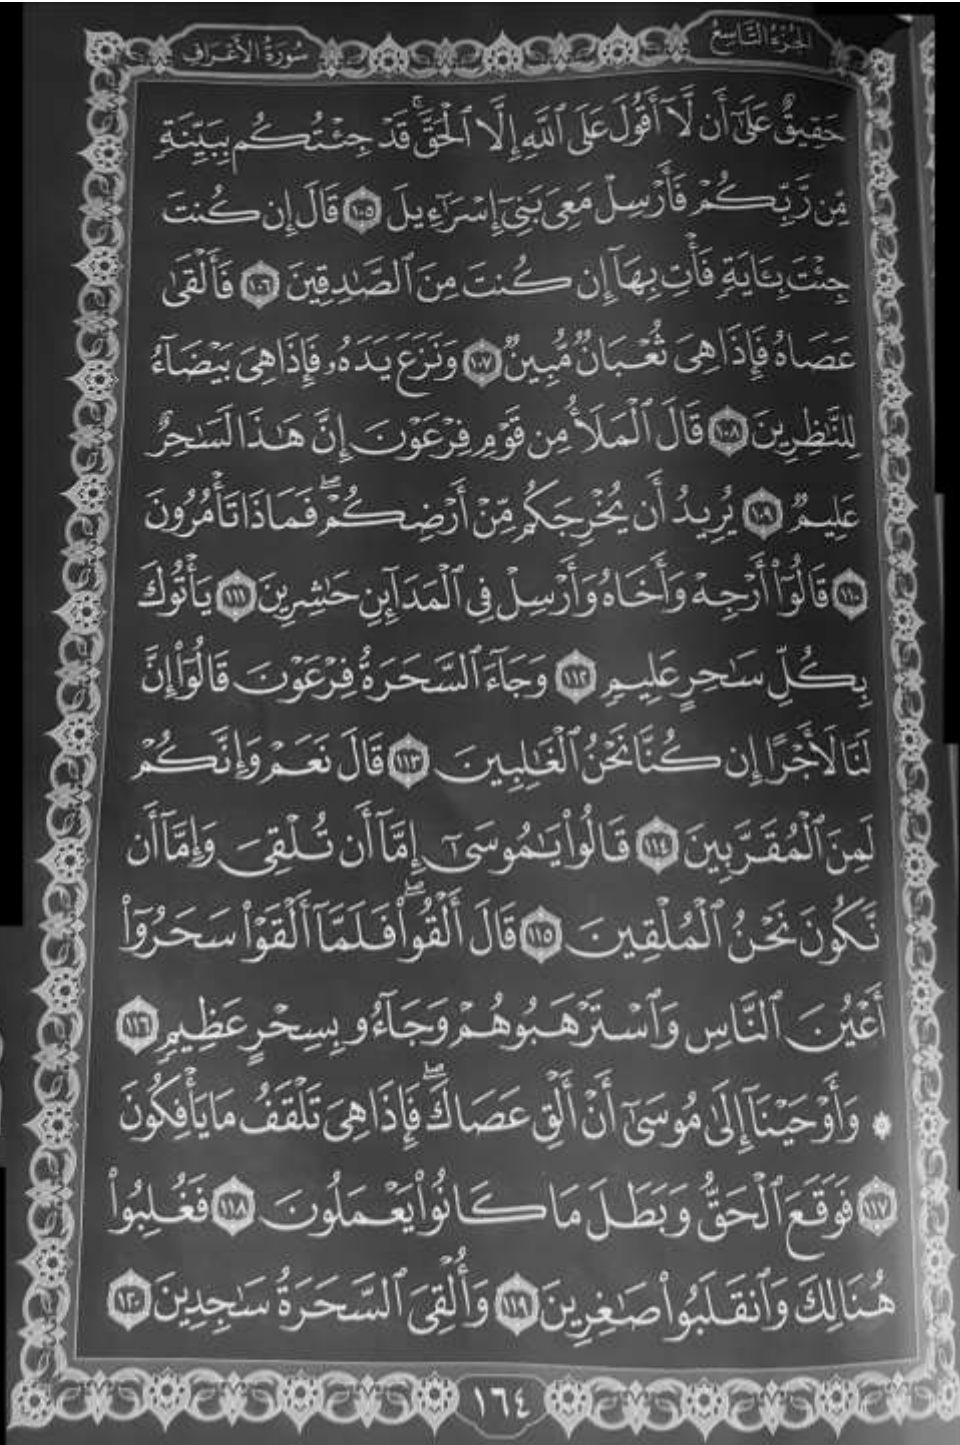 الجزء التاسع
سورة الأعراف
حَقِيقٌ عَلَىٰٓ أَن لَّآ أَقُولَ عَلَى ٱللَّهِ إِلَّا ٱلْحَقَّۚ قَدْ جِئْتُكُم بِبَيِّنَةٍ
مِّن رَّبِّكُمْ فَأَرْسِلْ مَعِىَ بَنِىٓ إِسْرَٰٓءِيلَ ١٠٥ قَالَ إِن كُنتَ
جِئْتَ بِـَٔايَةٍ فَأْتِ بِهَآ إِن كُنتَ مِنَ ٱلصَّٰدِقِينَ ١٠٦ فَأَلْقَىٰ
عَصَاهُ فَإِذَا هِىَ ثُعْبَانٌ مُّبِينٌ ١٠٧ وَنَزَعَ يَدَهُۥ فَإِذَا هِىَ بَيْضَآءُ
لِلنَّٰظِرِينَ ١٠٨ قَالَ ٱلْمَلَأُ مِن قَوْمِ فِرْعَوْنَ إِنَّ هَٰذَا لَسَٰحِرٌ
عَلِيمٌ ١٠٩ يُرِيدُ أَن يُخْرِجَكُم مِّنْ أَرْضِكُمْۖ فَمَاذَا تَأْمُرُونَ
١١٠ قَالُوٓاْ أَرْجِهْ وَأَخَاهُ وَأَرْسِلْ فِى ٱلْمَدَآئِنِ حَٰشِرِينَ ١١١ يَأْتُوكَ
بِكُلِّ سَٰحِرٍ عَلِيمٍ ١١٢ وَجَآءَ ٱلسَّحَرَةُ فِرْعَوْنَ قَالُوٓاْ إِنَّ
لَنَا لَأَجْرًا إِن كُنَّا نَحْنُ ٱلْغَٰلِبِينَ ١١٣ قَالَ نَعَمْ وَإِنَّكُمْ
لَمِنَ ٱلْمُقَرَّبِينَ ١١٤ قَالُواْ يَٰمُوسَىٰٓ إِمَّآ أَن تُلْقِىَ وَإِمَّآ أَن
نَّكُونَ نَحْنُ ٱلْمُلْقِينَ ١١٥ قَالَ أَلْقُواْۖ فَلَمَّآ أَلْقَوْاْ سَحَرُوٓاْ
أَعْيُنَ ٱلنَّاسِ وَٱسْتَرْهَبُوهُمْ وَجَآءُو بِسِحْرٍ عَظِيمٍ ١١٦
۞ وَأَوْحَيْنَآ إِلَىٰ مُوسَىٰٓ أَنْ أَلْقِ عَصَاكَۖ فَإِذَا هِىَ تَلْقَفُ مَا يَأْفِكُونَ
١١٧ فَوَقَعَ ٱلْحَقُّ وَبَطَلَ مَا كَانُواْ يَعْمَلُونَ ١١٨ فَغُلِبُواْ
هُنَالِكَ وَٱنقَلَبُواْ صَٰغِرِينَ ١١٩ وَأُلْقِىَ ٱلسَّحَرَةُ سَٰجِدِينَ ١٢٠
١٦٤